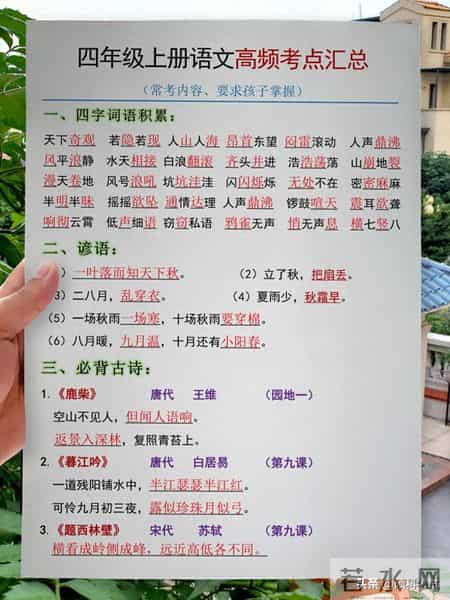 四年级上册语文高频考点汇总
（常考内容、要求孩子掌握）
一、四字词语积累：
天下奇观 若隐若现 人山人海 昂首东望 闷雷滚动 人声鼎沸
风平浪静 水天相接 白浪翻滚 齐头并进 浩浩荡荡 山崩地裂
漫天卷地 风号浪吼 坑坑洼洼 闪闪烁烁 无处不在 密密麻麻
半明半昧 摇摇欲坠 通情达理 人声鼎沸 锣鼓喧天 震耳欲聋
响彻云霄 低声细语 窃窃私语 鸦雀无声 悄无声息 横七竖八
二、谚语：
）一叶落而知天下秋。 （2）立了秋，把扇丢。
3）二八月，乱穿衣。 （4）夏雨少，秋霜早。
（5）一场秋雨一场寒，十场秋雨要穿棉。
（6）八月暖，九月温，十月还有小阳春。
三、必背古诗：
1.《鹿柴》 唐代 王维 （园地一）
空山不见人，但闻人语响。
返景入深林，复照青苔上。
2.《暮江吟》 唐代 白居易 （第九课）
一道残阳铺水中，半江瑟瑟半江红。
可怜九月初三夜，露似珍珠月似弓。
3.《题西林壁》 宋代 苏轼 （第九课）
横看成岭侧成峰，远近高低各不同。
若水网